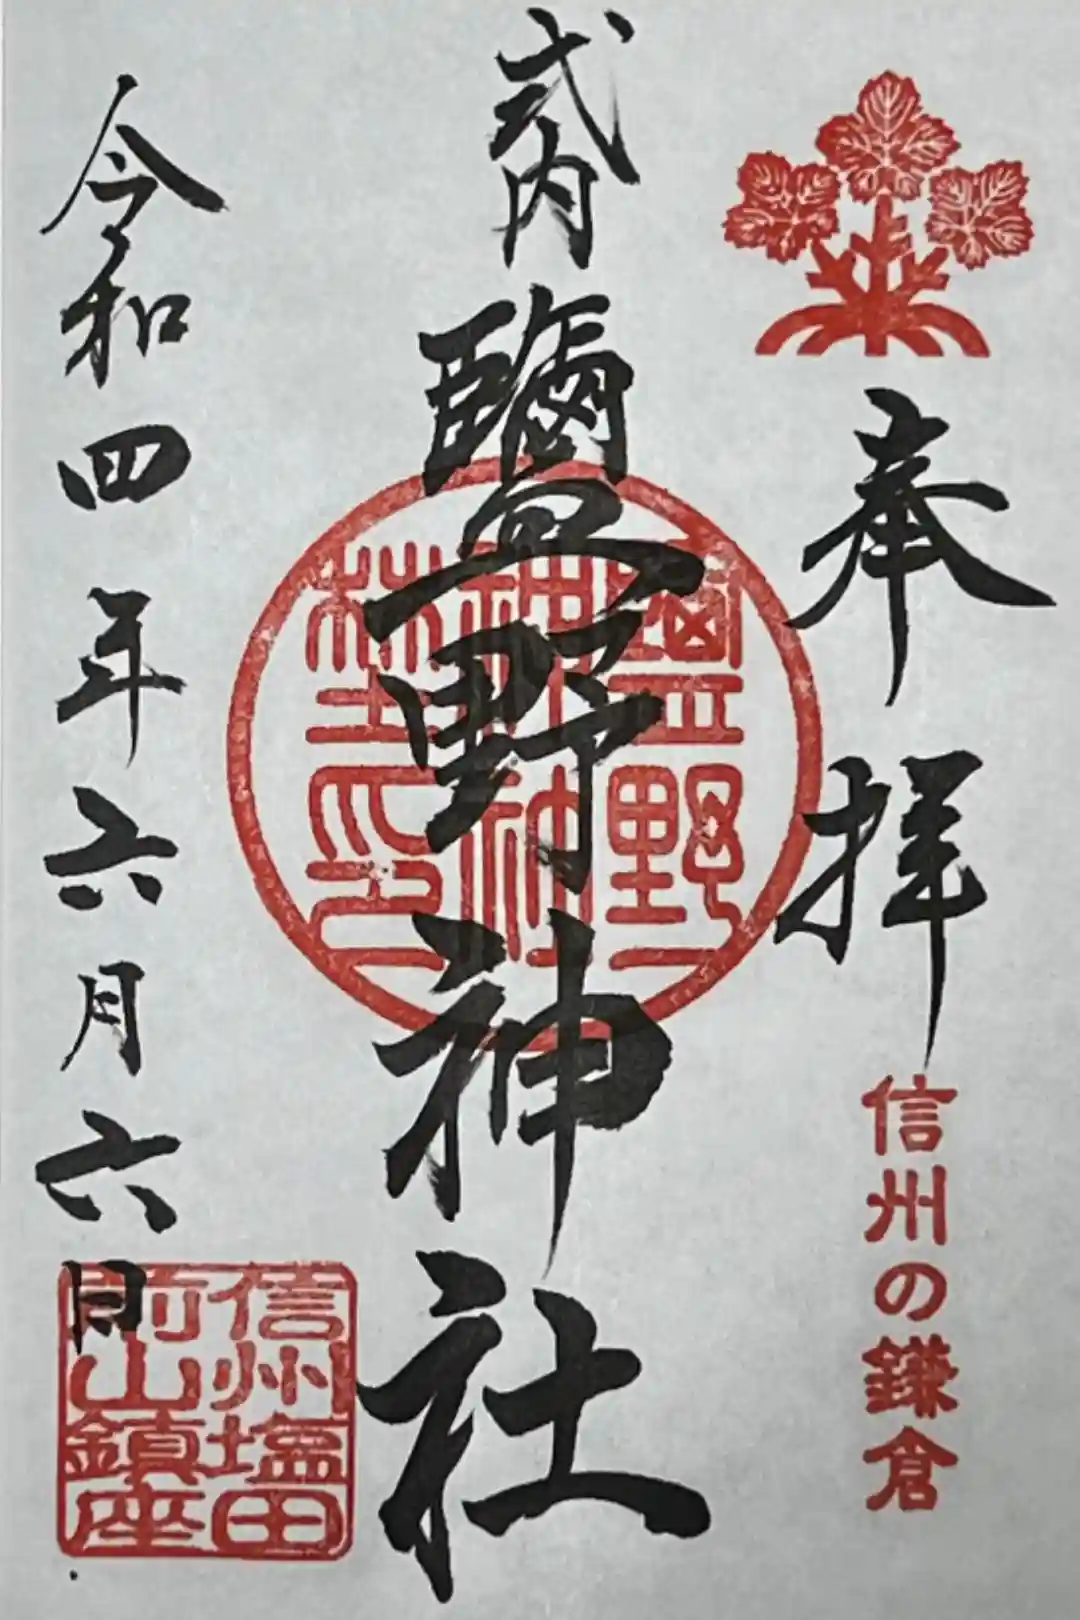 奉拝
信州の鎌倉
式内
鹽野神社
鹽野
神社
社印
令和四年六月六日
信州塩田
前山鎮座